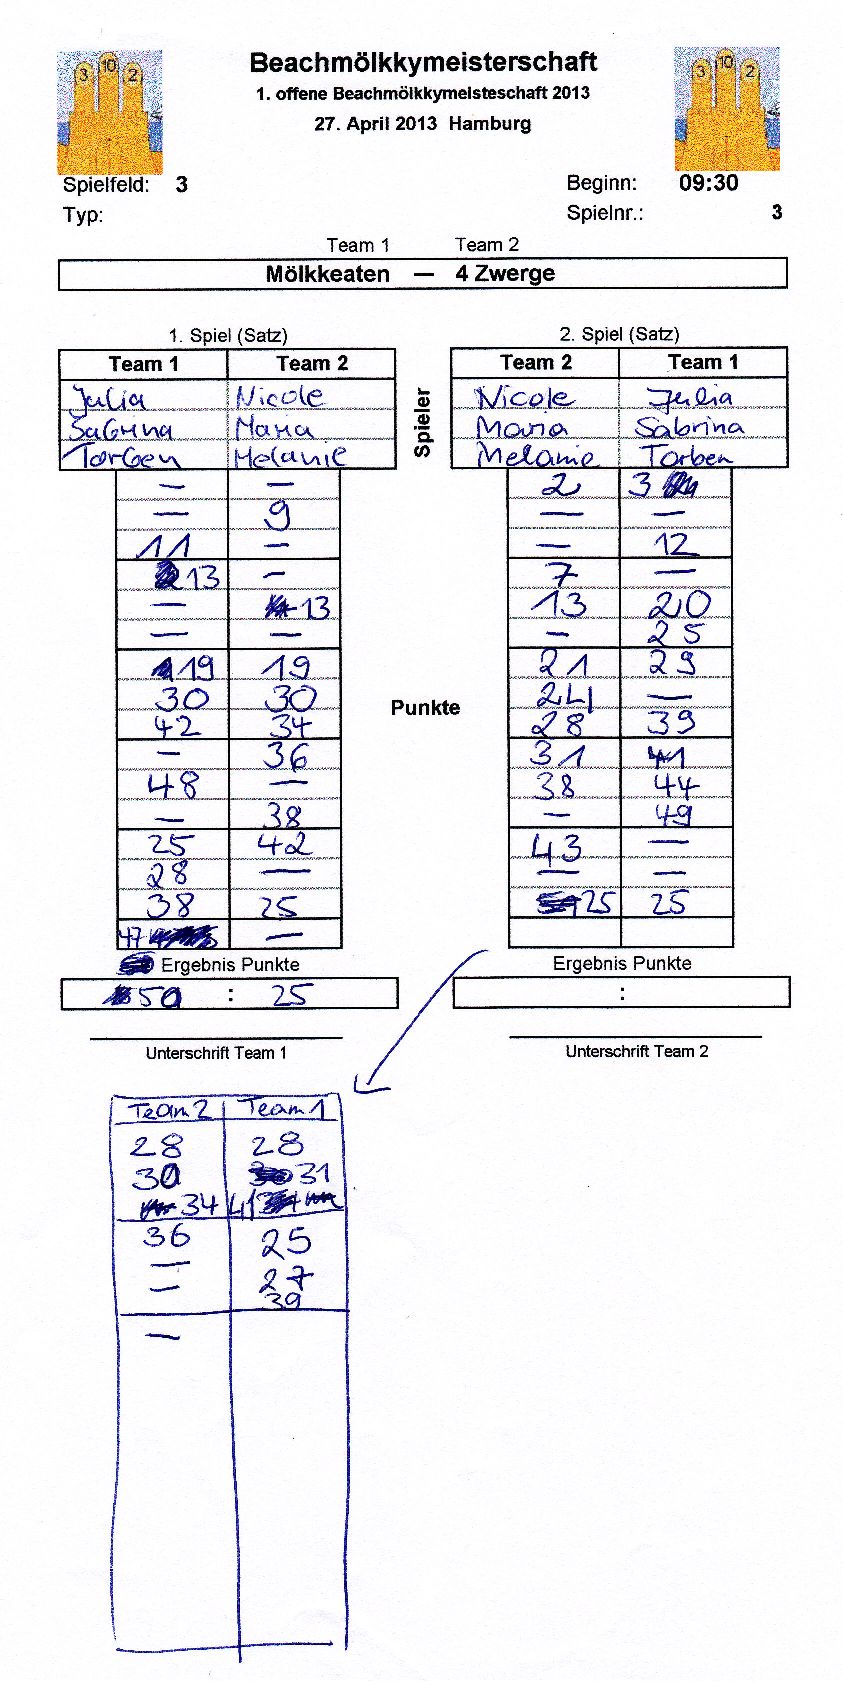 Beachmölkkymeisterschaft
1. offene Beachmölkkymeisteschaft 2013
27. April 2013 Hamburg
3 10 2
3 10 2
Spielfeld: 3
Beginn: 09:30
Typ:
Spielnr.: 3
Team 1 Team 2
Mölkkeaten — 4 Zwerge
1. Spiel (Satz)
2. Spiel (Satz)
Team 1 Team 2
Team 2 Team 1
Spieler
Julia Nicole
Nicole Julia
Sabrina Maria
Maria Sabrina
Torben Melanie
Melanie Torben
— —
2 3
— 9
— —
11 —
— 12
13 —
7 —
— 13
13 20
— —
— 25
19 19
21 29
30 30
24 —
Punkte
42 34
28 39
— 36
31 41
48 —
38 44
— 38
— 49
25 42
43 —
28 —
— —
38 25
25 25
47 —
Ergebnis Punkte
Ergebnis Punkte
50 : 25
:
Unterschrift Team 1
Unterschrift Team 2
Team 2 Team 1
28 28
30 31
34 41
36 25
— 27
— 39
—